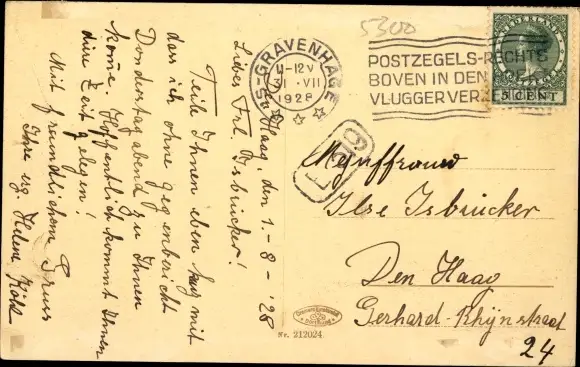 Den Haag, den 1.-8-'28
Liebes Frl. Isbrücker!
Teile Ihnen eben kurz mit
dass ich ohne gegenbericht
Donderstag abend zu Ihnen
komme. Hoffentlich kommt Ihnen
diese Zeit gelegen!
Mit freundlichem Gruss
Ihre erg. Helene Kühl
5300
'S-GRAVENHAGE
11-12 V
31 VII
1928
POSTZEGELS RECHTS
BOVEN IN DEN
VLUGGER VER
NEDERLAND
5 CENT
Mejuffrouw
Ilse Isbrücker
Den Haag
Gerhard-Rhijnstraat
24
Nr. 212024